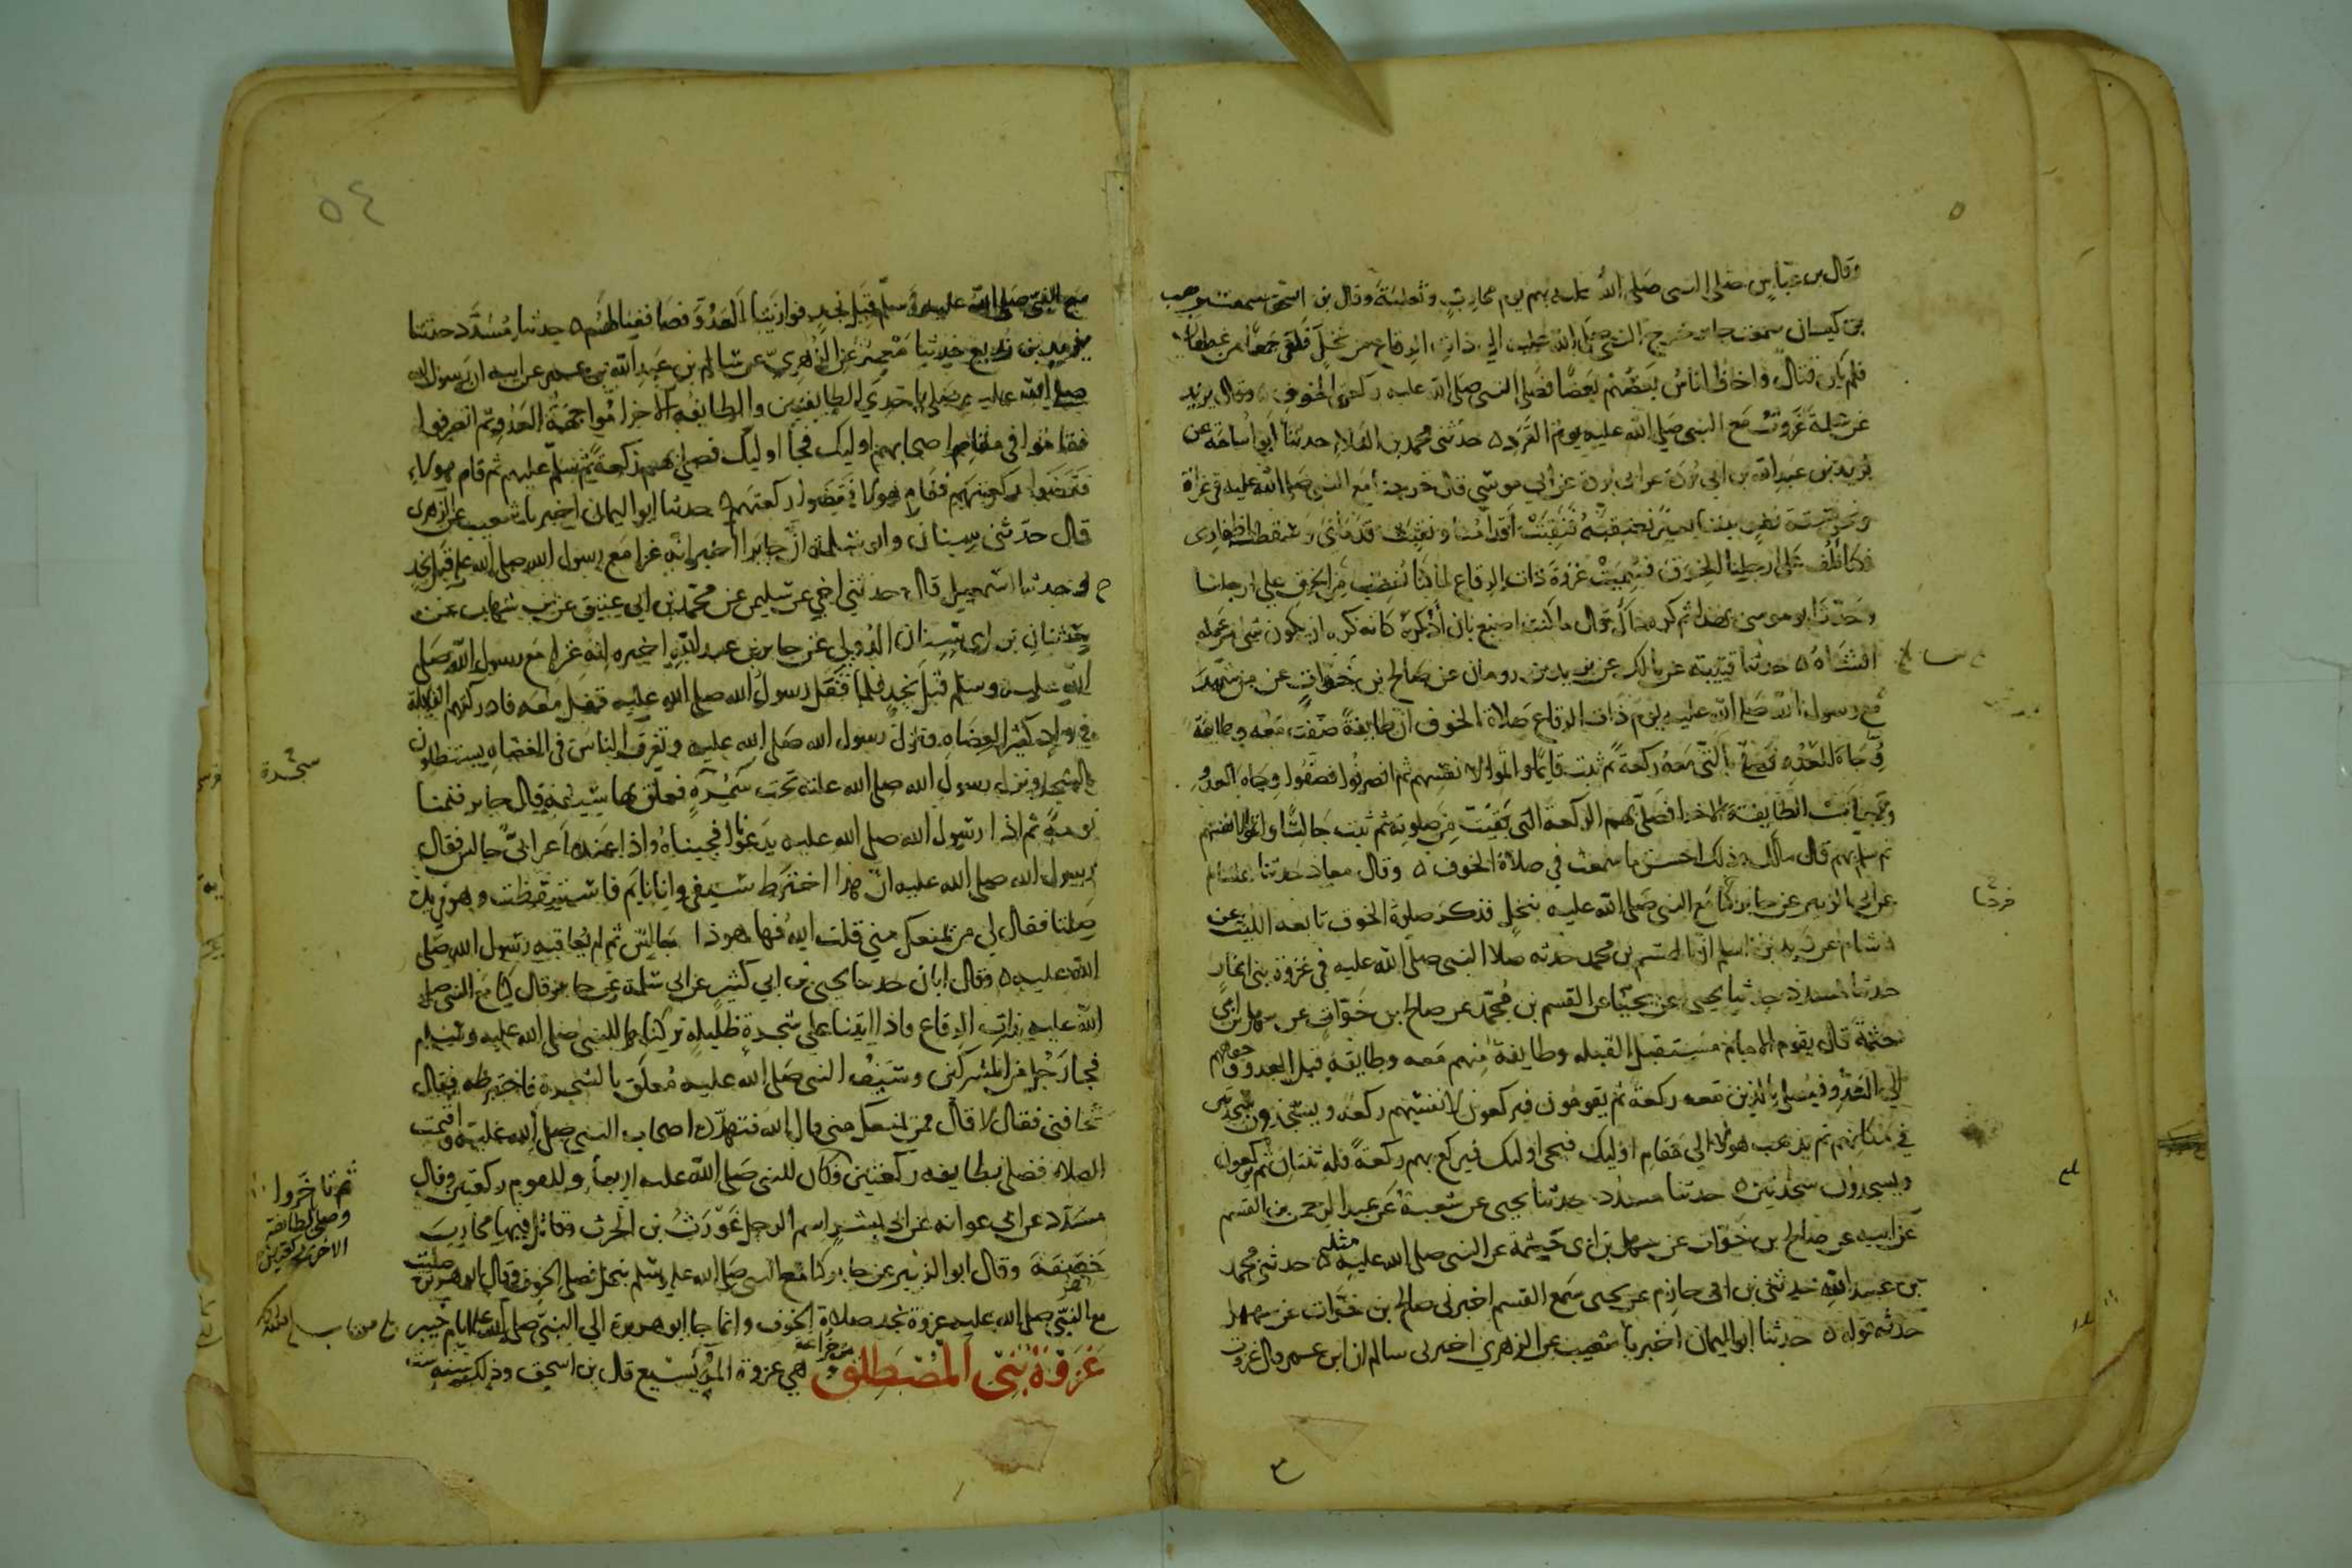 وقال بن عباس صلى النبى صلى الله عليه بهم يوم محارب وثعلبة وقال بن اسحق سمعت وهب
بن كيسان سمعت جابر خرج النبى صلى الله عليه الى ذات الرقاع من نخل فلقى جمعا من غطفان
فلم يكن قتال واخاف الناس بعضهم بعضا فصلى النبى صلى الله عليه ركعتى الخوف وقال يزيد
عن سلمة غزوت مع النبى صلى الله عليه يوم القرد ه حدثنى محمد بن العلاء حدثنا ابو اسامة عن
بريد بن عبد الله بن ابى بردة عن ابى بردة عن ابي موسى قال خرجنا مع النبى صلى الله عليه فى غزاة
ونحن ستة نفر بيننا بعير نعتقبه فنقبت اقدامنا ونقبت قدماى وسقطت اظفارى
فكنا نلف على ارجلنا الخرق فسميت غزوة ذات الرقاع لما كنا نعصب من الخرق على ارجلنا
وحدث ابو موسى بهذا ثم كره ذاك قال ما كنت اصنع بان اذكره كانه كره ان يكون شى من عمله
افشاه ه حدثنا قتيبة عن مالك عن يزيد بن رومان عن صالح بن خوات عن من شهد
مع رسول الله صلى الله عليه يوم ذات الرقاع صلاة الخوف ان طايفة صفت معه وطايفة
وجاه العدو فصلى بالتى معه ركعة ثم ثبت قايما واتموا لانفسهم ثم انصرفوا فصفوا وجاه العدو
وجات الطايفة الاخرى فصلى بهم الركعة التى بقيت من صلوته ثم ثبت جالسا واتموا لانفسهم
ثم سلم بهم قال مالك وذلك احسن ما سمعت في صلاة الخوف ه وقال معاذ حدثنا هشام
عن ابى الزبير عن جابر كنا مع النبى صلى الله عليه بنخل فذكر صلوة الخوف تابعه الليث عن
هشام عن زيد بن اسلم ان القسم بن محمد حدثه صلا النبى صلى الله عليه في غزوة بنى انمار
حدثنا مسدد حدثنا يحيى عن يحيى عن القسم بن محمد عن صالح بن خوات عن سهل بن ابي
حثمة قال يقوم الامام مستقبل القبله وطايفة منهم معه وطايفة قبل العدو وجوههم
الي العدو فيصلى بالذين معه ركعة ثم يقومون فيركعون لانفسهم ركعة ويسجدون سجدتين
في مكانهم ثم يذهب هولا الي مقام اوليك فيجى اوليك فيركع بهم ركعة فله ثنتان ثم يركعون
ويسجدون سجدتين ه حدثنا مسدد حدثنا يحيى عن شعبة عن عبد الرحمن بن القسم
عن ابيه عن صالح بن خوات عن سهل بن ابى حثمة عن النبى صلى الله عليه مثله ه حدثنى محمد
بن عبيد الله حدثنى بن ابى حازم عن يحيى سمع القسم اخبرنى صالح بن خوات عن سهل
حدثه قوله ه حدثنا ابو اليمان اخبرنا شعيب عن الزهري اخبرنى سالم ان ابن عمر قال غزوت
٥٤
مع النبى صلى الله عليه وسلم قبل نجد فوازينا العدو فصاففناهم ه حدثنا مسدد حدثنا
يزيد بن زريع حدثنا معمر عن الزهري عن سالم بن عبد الله بن عمر عن ابيه ان رسول الله
صلى الله عليه صلى باحدي الطايفتين والطايفة الاخرى مواجهة العدو ثم انصرفوا
فقاموا في مقام اصحابهم اوليك فجا اوليك فصلى بهم ركعة ثم سلم عليهم ثم قام هولاء
فقضوا ركعتهم وقام هولا فقضوا ركعتهم ه حدثنا ابو اليمان اخبرنا شعيب عن الزهرى
قال حدثنى سنان وابو سلمة ان جابرا اخبر انه غزا مع رسول الله صلى الله عليه قبل نجد
ح وحدثنا اسمعيل قال حدثني اخي عن سليمن عن محمد بن ابي عتيق عن بن شهاب عن
سنان بن ابى سنان الدولي عن جابر بن عبد الله اخبره انه غزا مع رسول الله صلى
الله عليه وسلم قبل نجد فلما قفل رسول الله صلى الله عليه قفل معه فادركتهم القايلة
فى واد كثير العضاه فنزل رسول الله صلى الله عليه وتفرق الناس فى العضاه يستظلون
بالشجر ونزل رسول الله صلى الله عليه تحت سمرة فعلق بها سيفه قال جابر فنمنا
نومة ثم اذا رسول الله صلى الله عليه يدعونا فجيناه واذا عنده اعرابى جالس فقال
رسول الله صلى الله عليه ان هذا اخترط سيفى وانا نايم فاستيقظت وهو فى يده
صلتا فقال لي من يمنعك مني قلت الله فها هو ذا جالس ثم لم يعاقبه رسول الله صلى
الله عليه ه وقال ابان حدثنا يحيى بن ابي كثير عن ابي سلمة عن جابر قال كنا مع النبى صلى
الله عليه بذات الرقاع واذا اتينا على شجرة ظليلة تركناها للنبى صلى الله عليه وسلم
فجا رجل من المشركين وسيف النبى صلى الله عليه معلق بالشجرة فاخترطه فقال
تخافنى فقال لا قال من يمنعك منى قال الله فتهدده اصحاب النبى صلى الله عليه واقيمت
الصلاة فصلى بطايفه ركعتين وكان للنبى صلى الله عليه اربعا وللقوم ركعتين وقال
مسدد عن ابي عوانه عن ابى بشر اسم الرجل غورث بن الحرث وقاتل فيها محارب
خصفة وقال ابو الزبير عن جابر كنا مع النبى صلى الله عليه وسلم بنخل فصلى الخوف وقال ابو هريرة صليت
مع النبى صلى الله عليه غزوة نجد صلاة الخوف وانما جا ابو هريرة الي النبى صلى الله عليه ايام خيبر
غزوة بنى المصطلق من خزاعة وهي غزوة المريسيع قال بن اسحق وذلك سنة ست
شجرة
ثم تاخروا
وصلى بالطائفة
الاخرى ركعتين